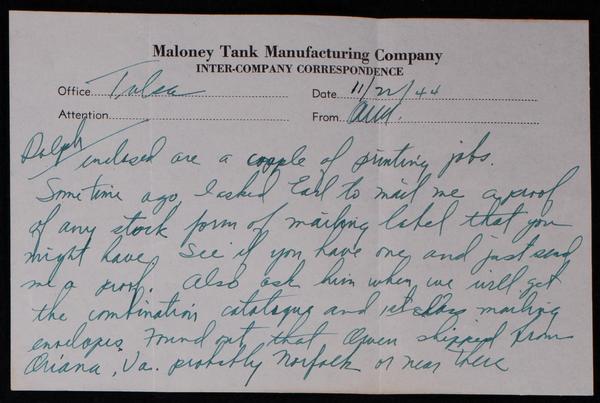 Maloney Tank Manufacturing Company
INTER-COMPANY CORRESPONDENCE
Office Tulsa Date 11/22/44
Attention From
Ralph enclosed are a couple of printing jobs.
Sometime ago, I asked Earl to mail me a proof
of any stock form of mailing label that you
might have. See if you have one and just send
me a proof. Also ask him when we will get
the combination catalogue and mailing
envelopes. Found out that Owen shipped from
Oriana, Va. probably Norfolk or near there